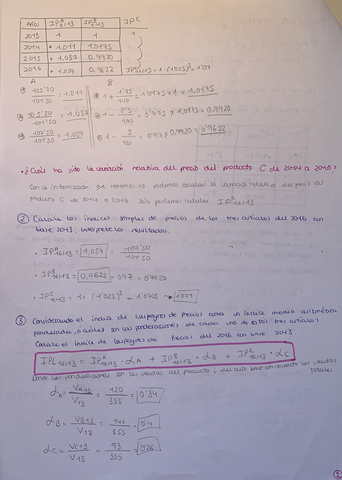 AÑO IPᴬt/13 IPᴮt/13 IPC
2013 1 1 1
2014 1.011 1,0175
2015 1.037 0.9920
2016 1.059 0.9622
A B
= 1.011
= 1.0175 x 1 = 1,0175
= 1.037
= 0.975 x 1,0175 = 0.9920
= 1.059
= 0.97 x 0.9920 = 0.9622
• ¿Cuál ha sido la variación relativa del precio del producto C de 2014 a 2016?
Con la información que tenemos no podemos calcular la variación relativa del precio del
Producto C de 2014 a 2016 solo podemos calcular
② Calcula los índices simples de precios de los tres artículos del 2016 con
base 2013, interprete los resultados.
• IPᴬ16/13 = 1,059
• IPᴮ16/13 = 0,9622 = 0.97 · 0.9920
• IPᶜ16/13 =
③ Considerando el índice de Laspeyres de precios como un índice media aritmética
ponderada, ¿cuáles son las ponderaciones de cada uno de estos tres artículos?
Calcula el índice de Laspeyres de precios del 2016 con base 2013
IPL16/13 = IPᴬ16/13 · αA + IPᴮ16/13 · αB + IPᶜ16/13 · αC
Donde las ponderaciones son las ventas del producto i del año base con respecto las ventas
totales
αA = VA13 / V13 = 120 / 355 = 0'34
αB = VB13 / V13 = / 355 = 0'4
αC = VC13 / V13 = 93 / 355 = 0'26